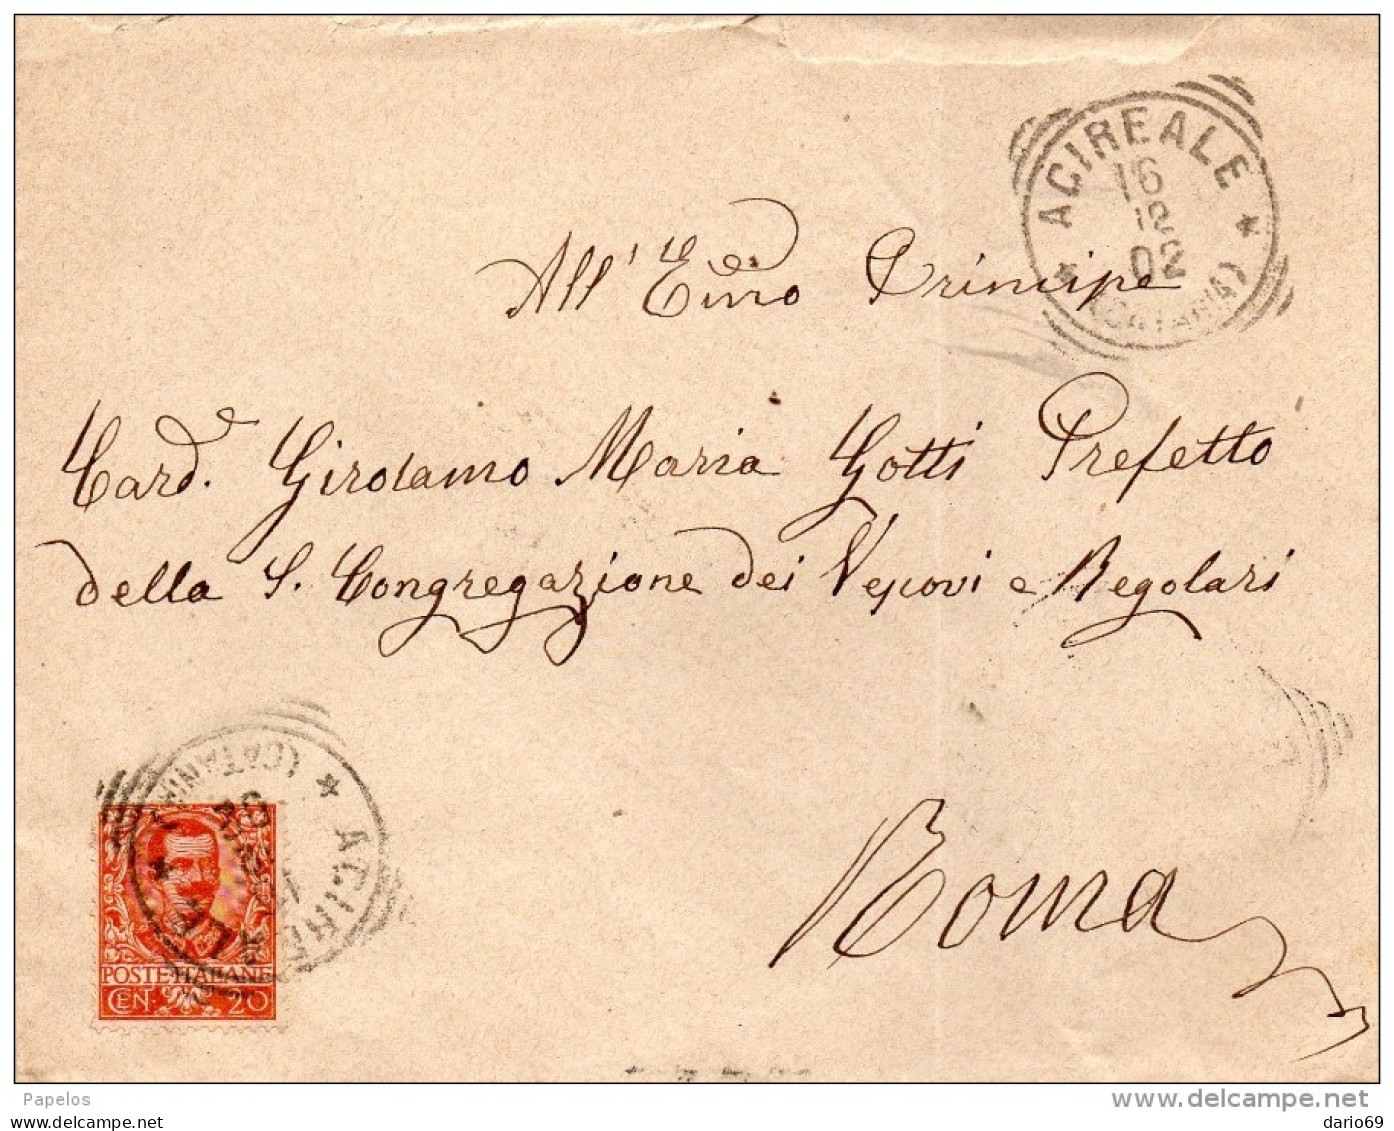 ACIREALE
16
12
02
(CATANIA)
All' Emo Principe
Card. Girolamo Maria Gotti Prefetto
della S. Congregazione dei Vescovi e Regolari
Roma
(CATANIA)
ACIREALE
POSTE ITALIANE
CEN. 20
Papelos
www.delcampe.net
dario69